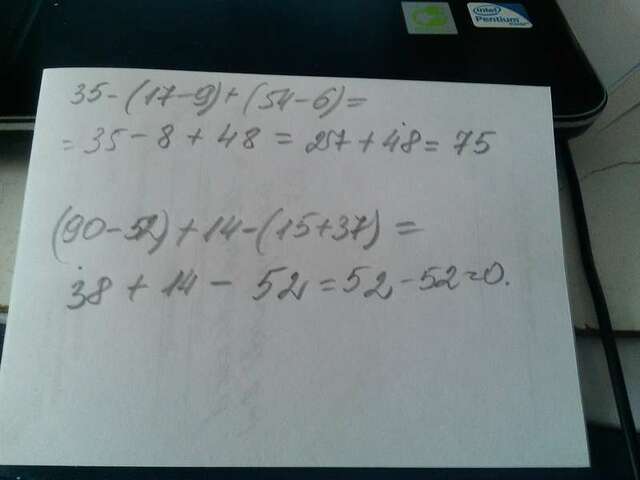 intel
Pentium
35-(17-9)+(54-6)=
=35-8+48=27+48=75
(90-52)+14-(15+37)=
38+14-52=52-52=0.